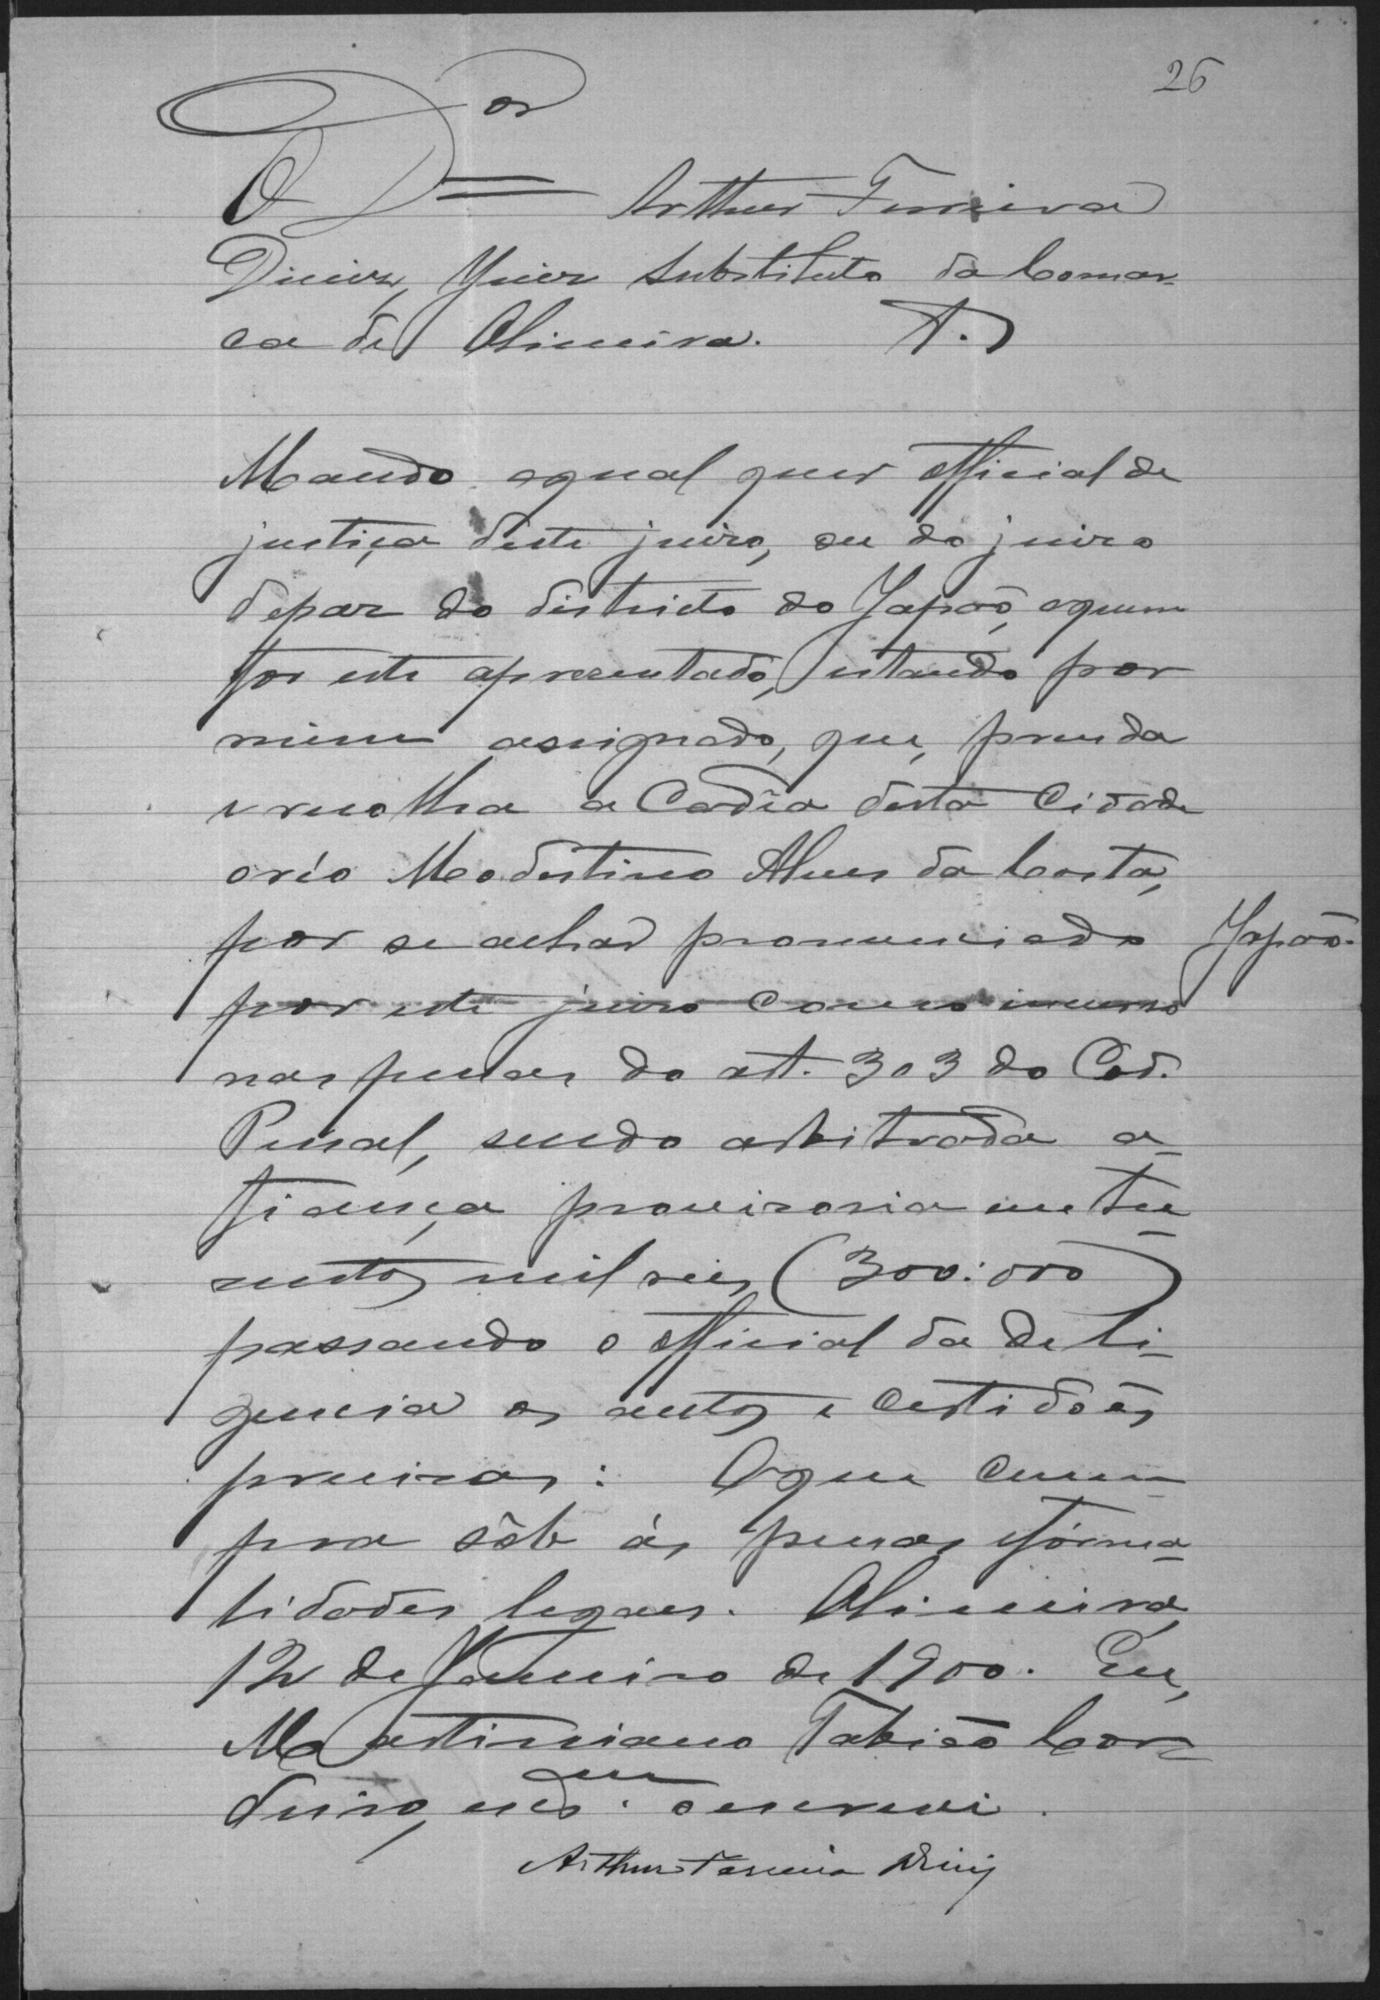 26
O Dor Arthur Ferreira
Diniz, Juiz substituto da Comar-
ca de Oliveira.
Mando aqual quer official de
justiça deste juizo, ou do juizo
depaz do districto do Japaõ, aquem
for este apresentado, estando por
mim assignado, que, prenda
e recolha a Cadêa desta Cidade
oréo Modestino Alves da Costa,
por se achar pronunciado Japaõ.
por este juizo como incurso
nas penas do art. 303 do Cod.
Penal, sendo arbitrada a-
fiança provisoria em tre-
sentos mil reis (300:000)
passando o official da deli-
gencia os autos e certidões
precizas: Oque cum-
pra sôb ás penas eforma-
lidades legaes. Oliveira,
12 de Janeiro de 1900. Eu,
Martiniano Fabião Cor-
deiro, escrivi.
Arthur Ferreira Diniz